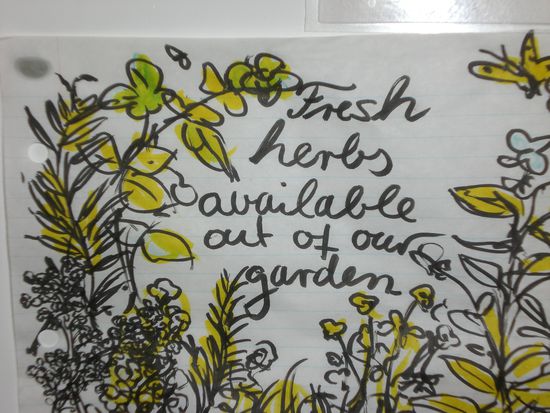 Fresh
herbs
available
out of our
garden